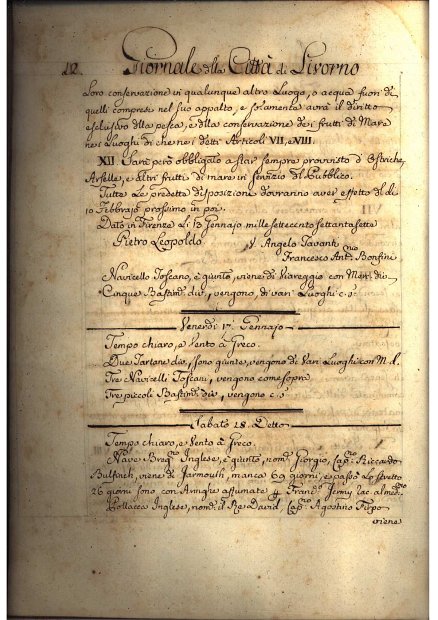 12. Giornale della Città di Livorno
Loro conservazione in qualunque altro Luogo, o acqua fuori di
quelli compresi nel suo appalto, e solamente avrà il diritto
esclusivo della pesca, e della conservazione dei frutti di Mare
nei Luoghi di che nei detti Articoli VII, e VIII.
XII Sarà però obbligato a star sempre provvisto d'Ostriche,
Arselle, e altri frutti di mare in servizio del Pubblico.
Tutte Le predette disposizioni dovranno aver effetto dal dì
10 Febbrajo prossimo in poi.
Dato in Firenze Li Gennajo mille settecento settantasette
Pietro Leopoldo V. Angelo Tavanti
Francesco Antnio Bonfini
Navicello Toscano, è giunto, viene di Viareggio con Merc. div.
Cinque Bastimti div., vengono, di vari Luoghi c. s.a
Venerdì 17. Gennajo
Tempo chiaro, e Vento à Greco.
Due Tartane div., sono giunte, vengono di Vari Luoghi con M. d.
Tre Navicelli Toscani, vengono come sopra
Tre piccoli Bastimti div., vengono c. s.a
Sabato 18. Detto
Tempo chiaro, e Vento à Greco.
Nave Inglese, è giunta, nomta Giorgio, Capno Riccardo
viene di Jarmouth, manca 69 giorni, e passò Lo Stretto
26 giorni sono con Aringhe affumate Francο Jermy
Pollacca Inglese, nomta il Re David, Capno Agostino
viene